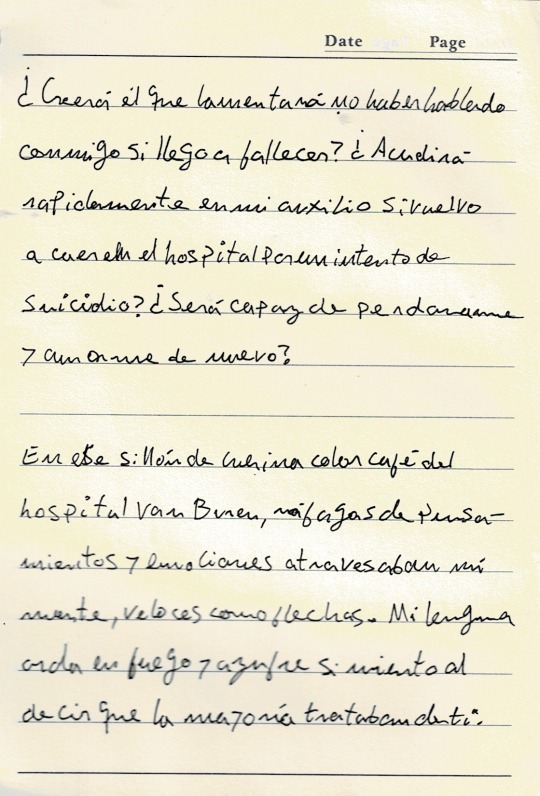 Date Page
¿Creerá él que lamentará no haber hablado
conmigo si llego a fallecer? ¿Acudirá
rapidamente en mi auxilio si vuelvo
a caer en el hospital por un intento de
suicidio? ¿Será capaz de perdonarme
y amarme de nuevo?
En ese sillón de cuerina color café del
hospital Van Buren, ráfagas de pensa-
mientos y emociones atravesaban mi
mente, veloces como flechas. Mi lengua
arda en fuego y azufre si miento al
decir que la mayoría trataban de ti.